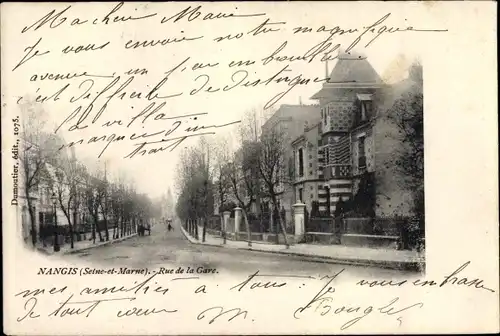 Ma chère Marie
Je vous envoie notre magnifique
avenue un fiacre en bouille
c'est difficile de distinguer
la villa
marquée d'un
trait
Dumoutier, édit., 1075.
NANGIS (Seine-et-Marne). - Rue de la Gare.
mes amitiés à tous Je vous embrasse
De tout cœur M